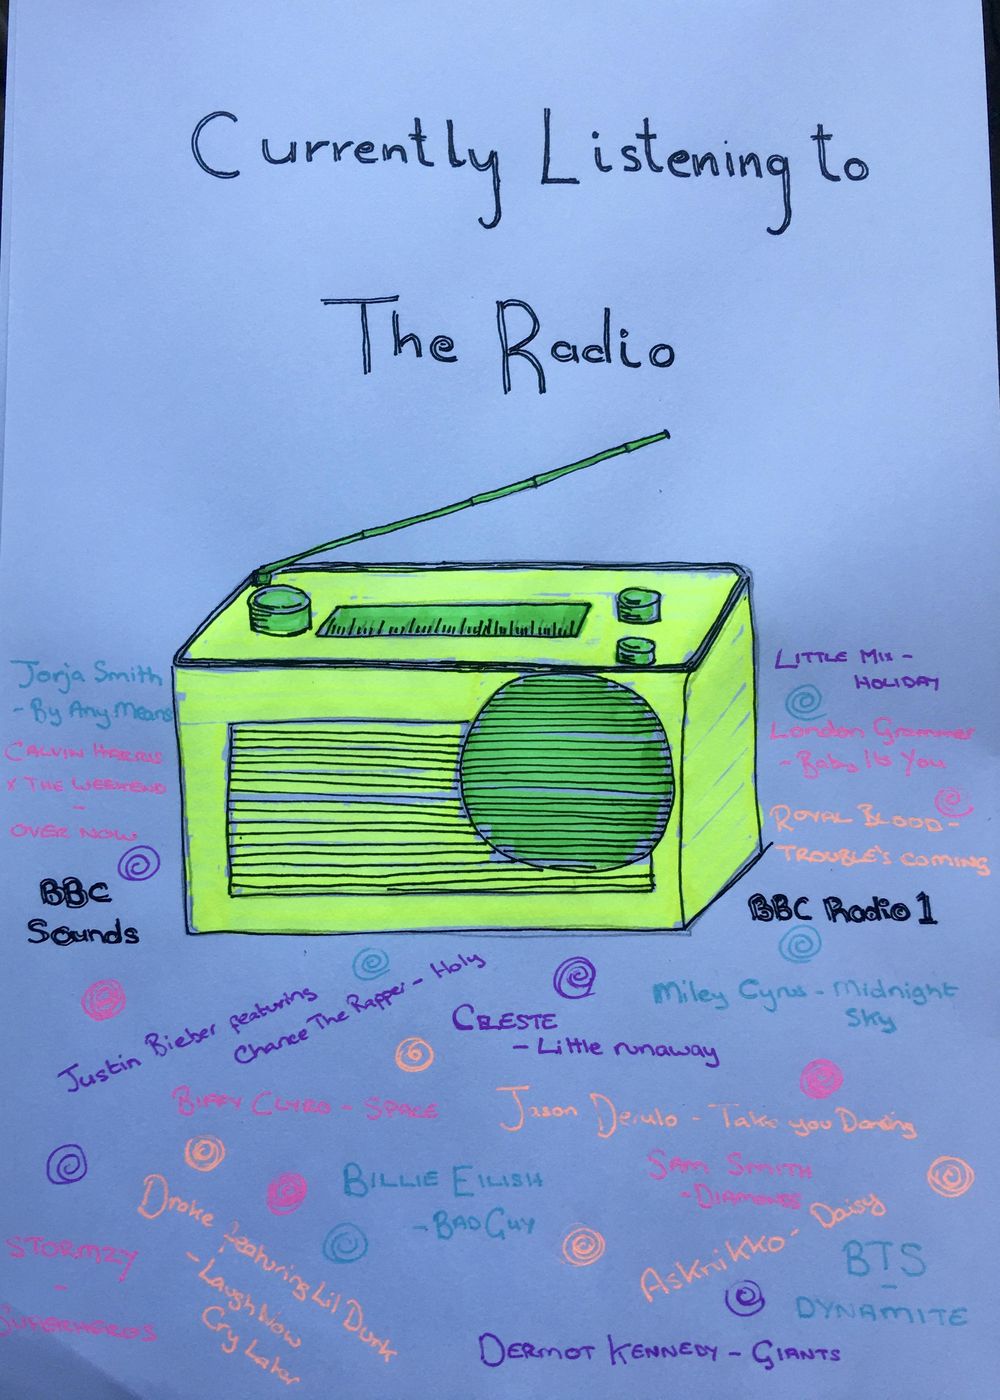 Currently Listening to
The Radio
Jorja Smith
- By Any Means
CALVIN HARRIS
X THE WEEKEND
-
OVER NOW
BBC
Sounds
LITTLE MIX -
HOLIDAY
London Grammer
- Baby Its You
ROYAL BLOOD -
TROUBLE'S COMING
BBC Radio 1
Justin Bieber featuring
Chance The Rapper - Holy
CELESTE
- Little runaway
Miley Cyrus - Midnight
Sky
BIFFY CLYRO - SPACE
Jason Derulo - Take you Dancing
Drake featuring Lil Durk
- Laugh Now
Cry Later
BILLIE EILISH
- BAD GUY
SAM SMITH
- DIAMONDS
ASKNIKKO - Daisy
STORMZY
-
SUPERHEROS
BTS
-
DYNAMITE
DERMOT KENNEDY - GIANTS